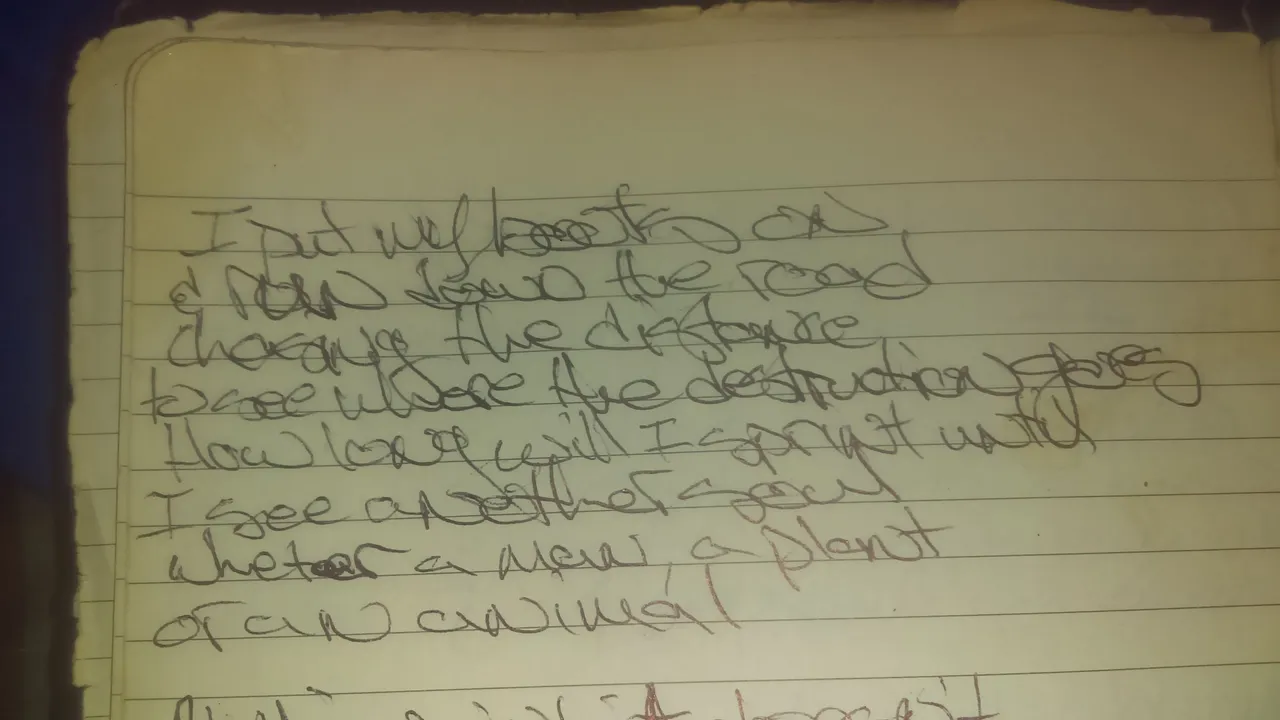 I put my boots on
& run down the road
chasing the distance
to see where the destruction goes
How long will I sprint until
I see another soul
whether a man, a plant
or an animal
it doesn't